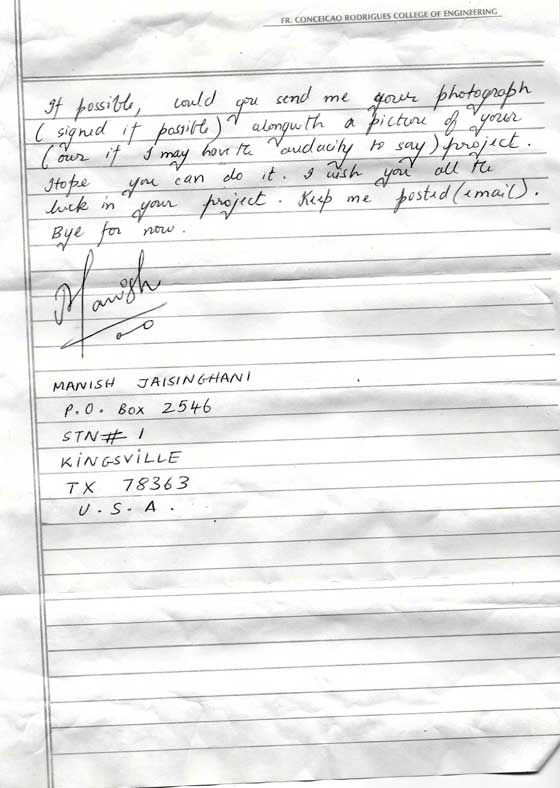 FR. CONCEICAO RODRIGUES COLLEGE OF ENGINEERING
If possible, could you send me your photograph
(signed if possible) alongwith a picture of your
(our if I may have the audacity to say) project.
Hope you can do it. I wish you all the
luck in your project. Keep me posted (email).
Bye for now.
Manish
MANISH JAISINGHANI
P.O. BOX 2546
STN# 1
KINGSVILLE
TX 78363
U.S.A.